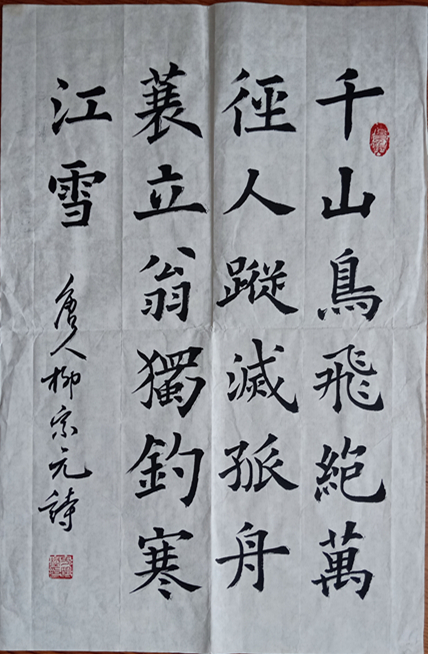 千山鳥飛絕萬
徑人蹤滅孤舟
蓑立翁獨釣寒
江雪
唐人柳宗元詩